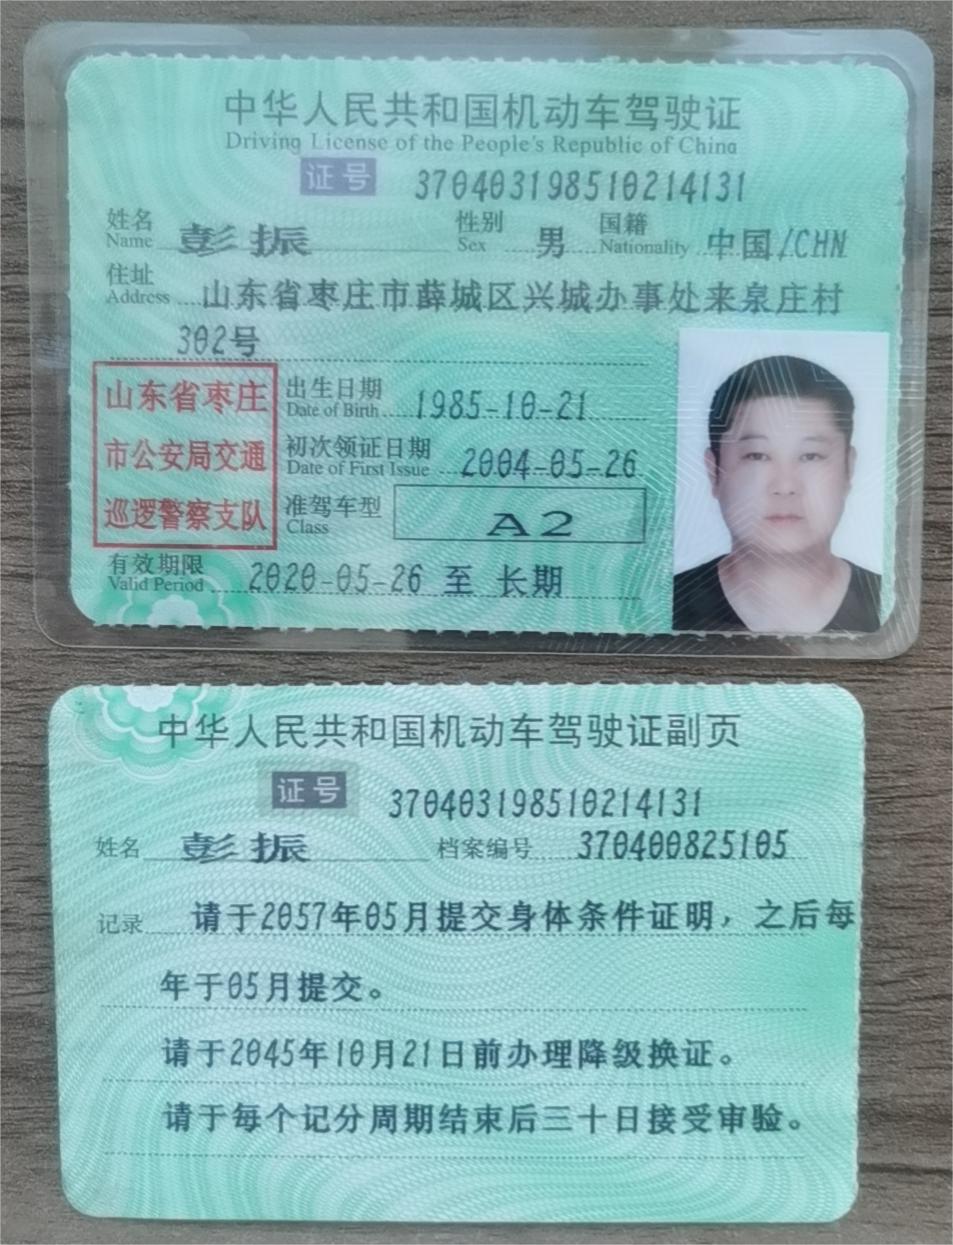 中华人民共和国机动车驾驶证
Driving License of the People's Republic of China
证号 370403198510214131
姓名 彭振 性别 男 国籍 中国/CHN
Name Sex Nationality
住址 山东省枣庄市薛城区兴城办事处来泉庄村
Address
302号
山东省枣庄
市公安局交通
巡逻警察支队
出生日期 1985-10-21
Date of Birth
初次领证日期 2004-05-26
Date of First Issue
准驾车型 A2
Class
有效期限 2020-05-26 至 长期
Valid Period
中华人民共和国机动车驾驶证副页
证号 370403198510214131
姓名 彭振 档案编号 370400825105
记录 请于2057年05月提交身体条件证明，之后每
年于05月提交。
请于2045年10月21日前办理降级换证。
请于每个记分周期结束后三十日接受审验。